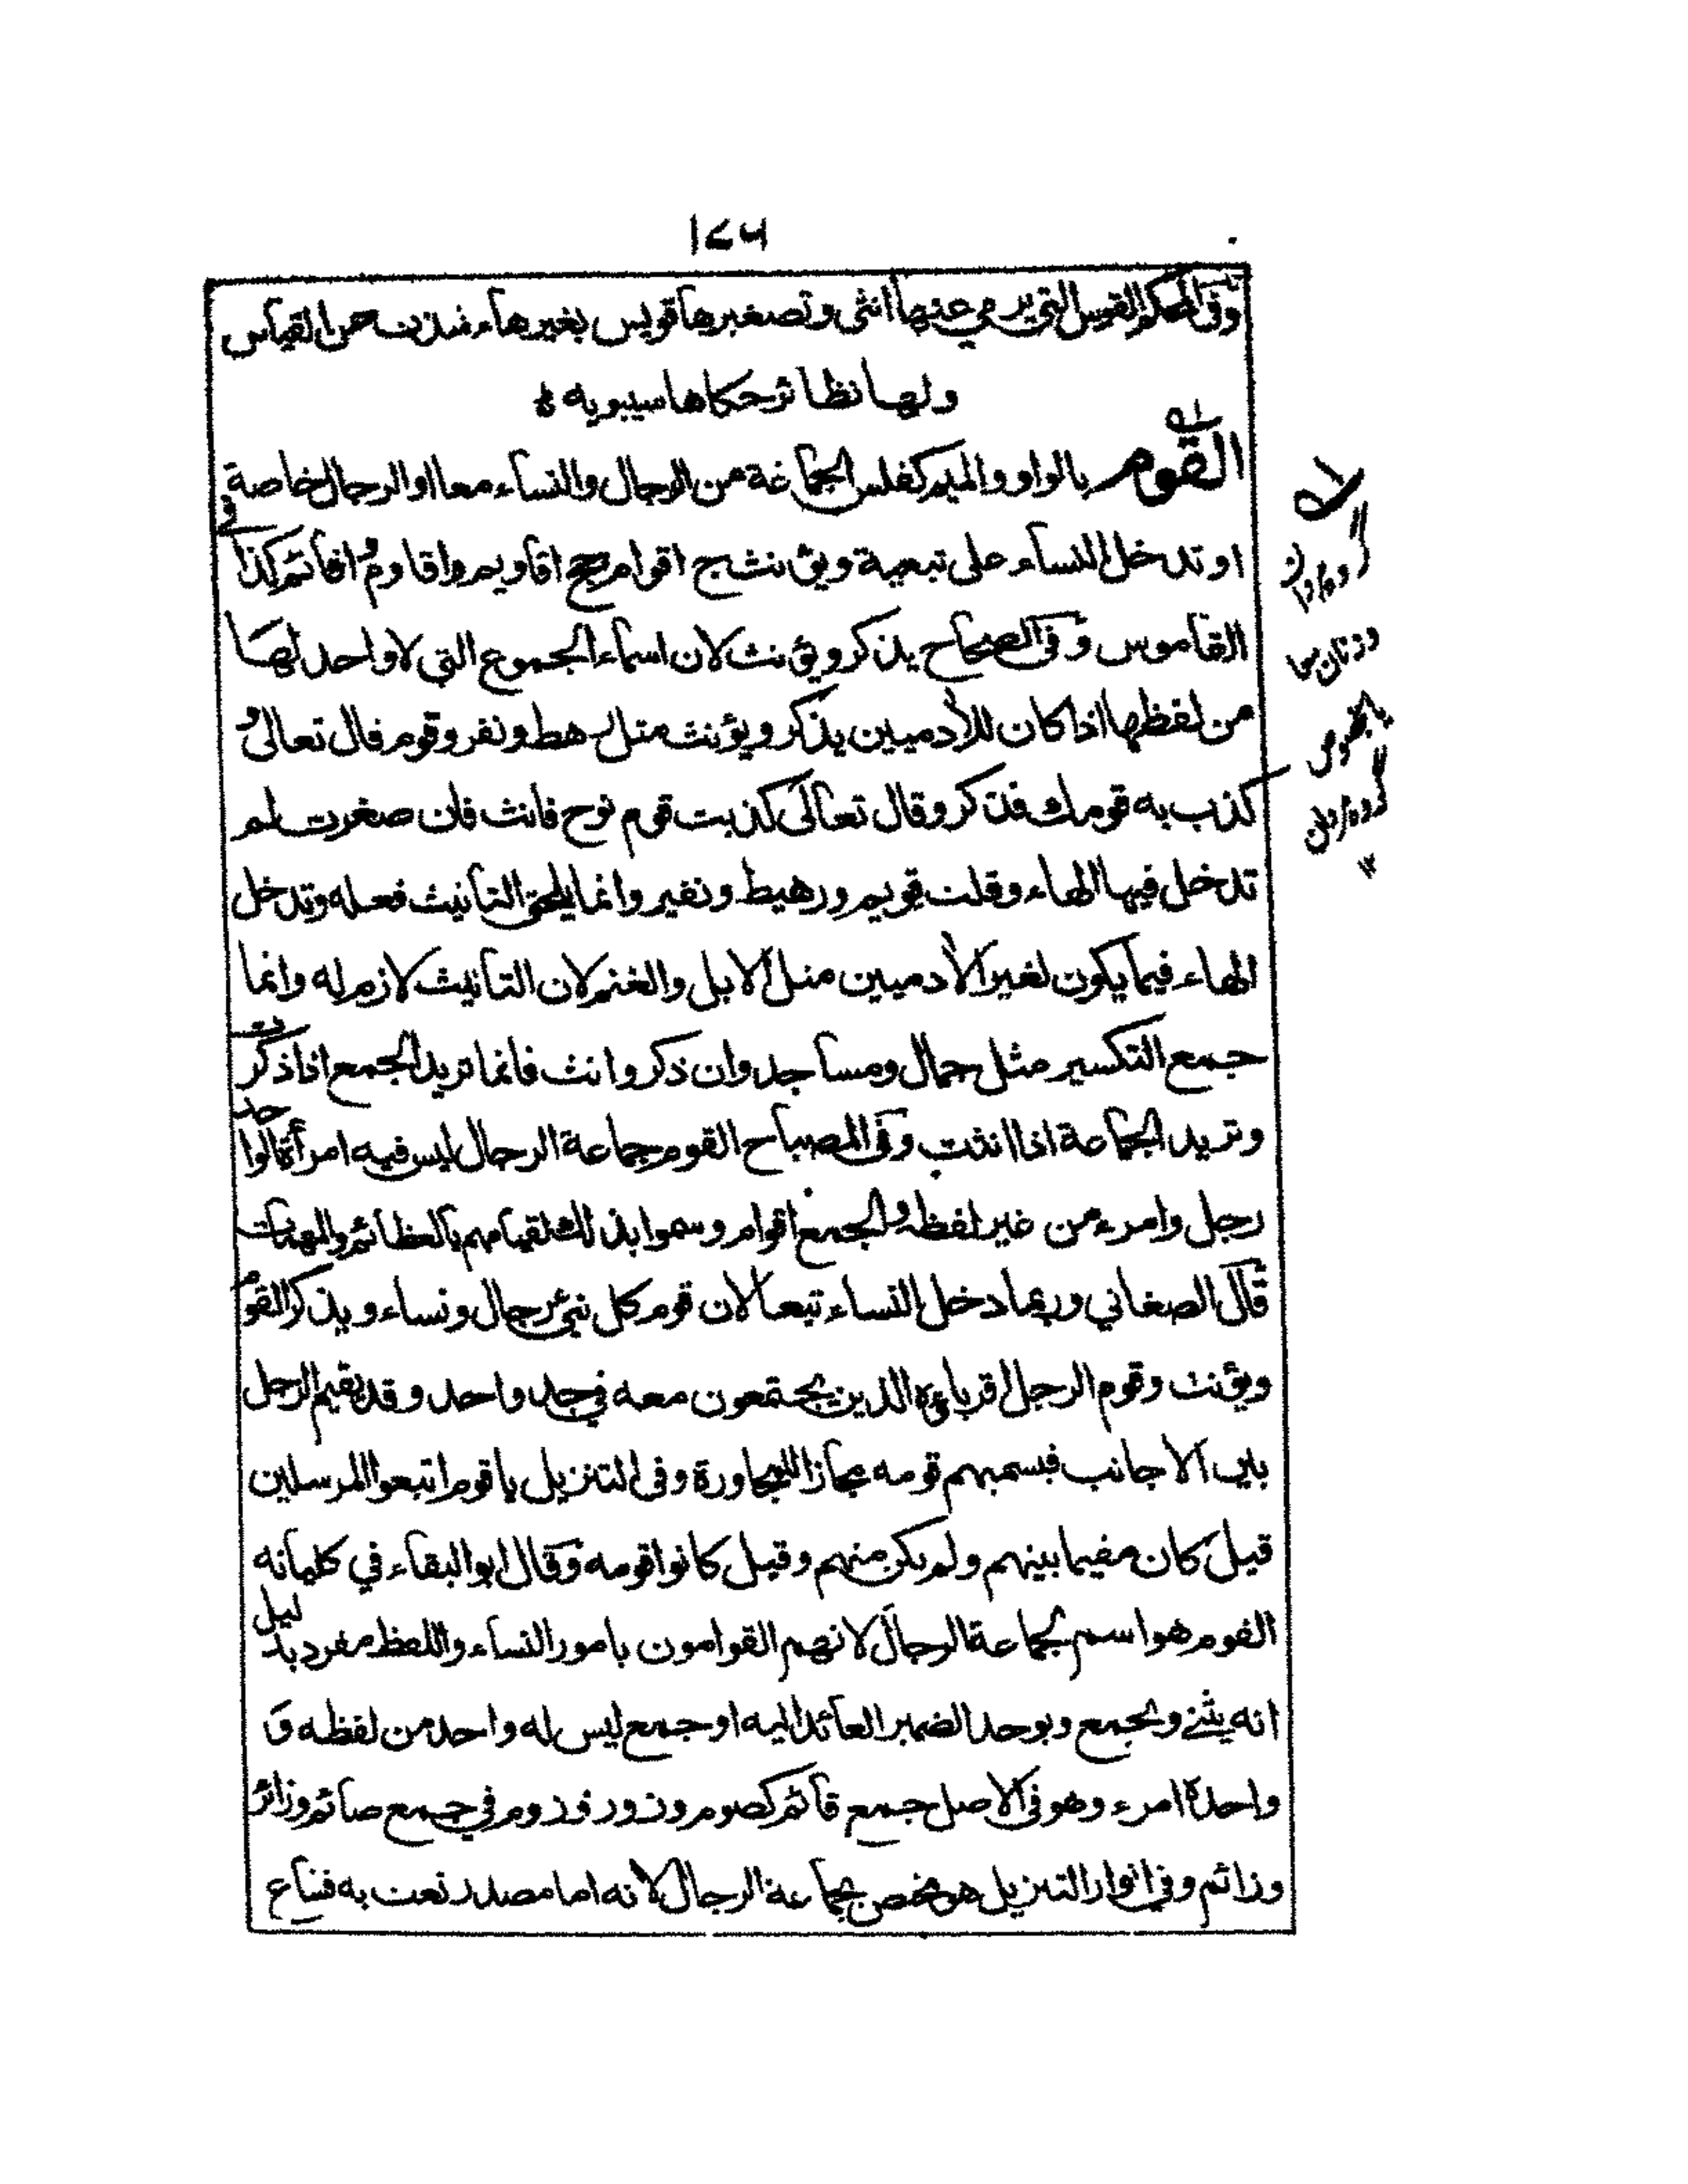 ١٧٦
وفى المحكم القوس التي يرمي عنها انثى وتصغيرها قويس بغير هاء شذت عن القياس
ولها نظائر حكاها سيبويه
القوم بالواو والميم كفلس الجماعة من الرجال والنساء معا او الرجال خاصة
او تدخل النساء على تبعية ويؤنث ج اقوام جج اقاويم واقاوم واقائم كذا فى
القاموس وفى الصحاح يذكر ويؤنث لان اسماء الجموع التي لا واحد لها
من لفظها اذا كان للآدميين يذكر ويؤنث مثل رهط ونفر وقوم قال تعالى و
كذب به قومك فذكر وقال تعالى كذبت قوم نوح فانث فان صغرت لم
تدخل فيها الهاء وقلت قويم ورهيط ونفير وانما يلحق التأنيث فعله وتدخل
الهاء فيما يكون لغير الآدميين مثل الابل والغنم لان التأنيث لازم له وانما
جمع التكسير مثل جمال ومساجد وان ذكر وانث فانما تريد الجمع اذا ذكرت
وتريد الجماعة اذا انثت وفى المصباح القوم جماعة الرجال ليس فيه امرأة الواحد
رجل وامرء من غير لفظه والجمع اقوام وسموا بذلك لقيامهم بالعظائم والمهمات
قال الصغاني وربما دخل النساء تبعا لان قوم كل نبي رجال ونساء ويذكر القوم
ويؤنث وقوم الرجل اقرباؤه الذين يجتمعون معه في جد واحد وقد يقيم الرجل
بين الاجانب فيسميهم قومه مجازا للمجاورة وفى التنزيل يا قوم اتبعوا المرسلين
قيل كان مقيما بينهم ولم يكن منهم وقيل كانوا قومه وقال ابو البقاء في كلياته
القوم هو اسم لجماعة الرجال لانهم القوامون بامور النساء واللفظ مفرد بدليل
انه يثنى ويجمع ويوحد الضمير العائد اليه او جمع ليس له واحد من لفظه و
واحده امرء وهو فى الاصل جمع قائم كصوم وزور وزوم في جمع صائم وزائر
وزائم وفي انوار التنزيل هو مختص بجماعة الرجال لانه اما مصدر نعت به فشاع
گروه مردان
وزنان معا
يا بخصوص
گروه مردان
١٢